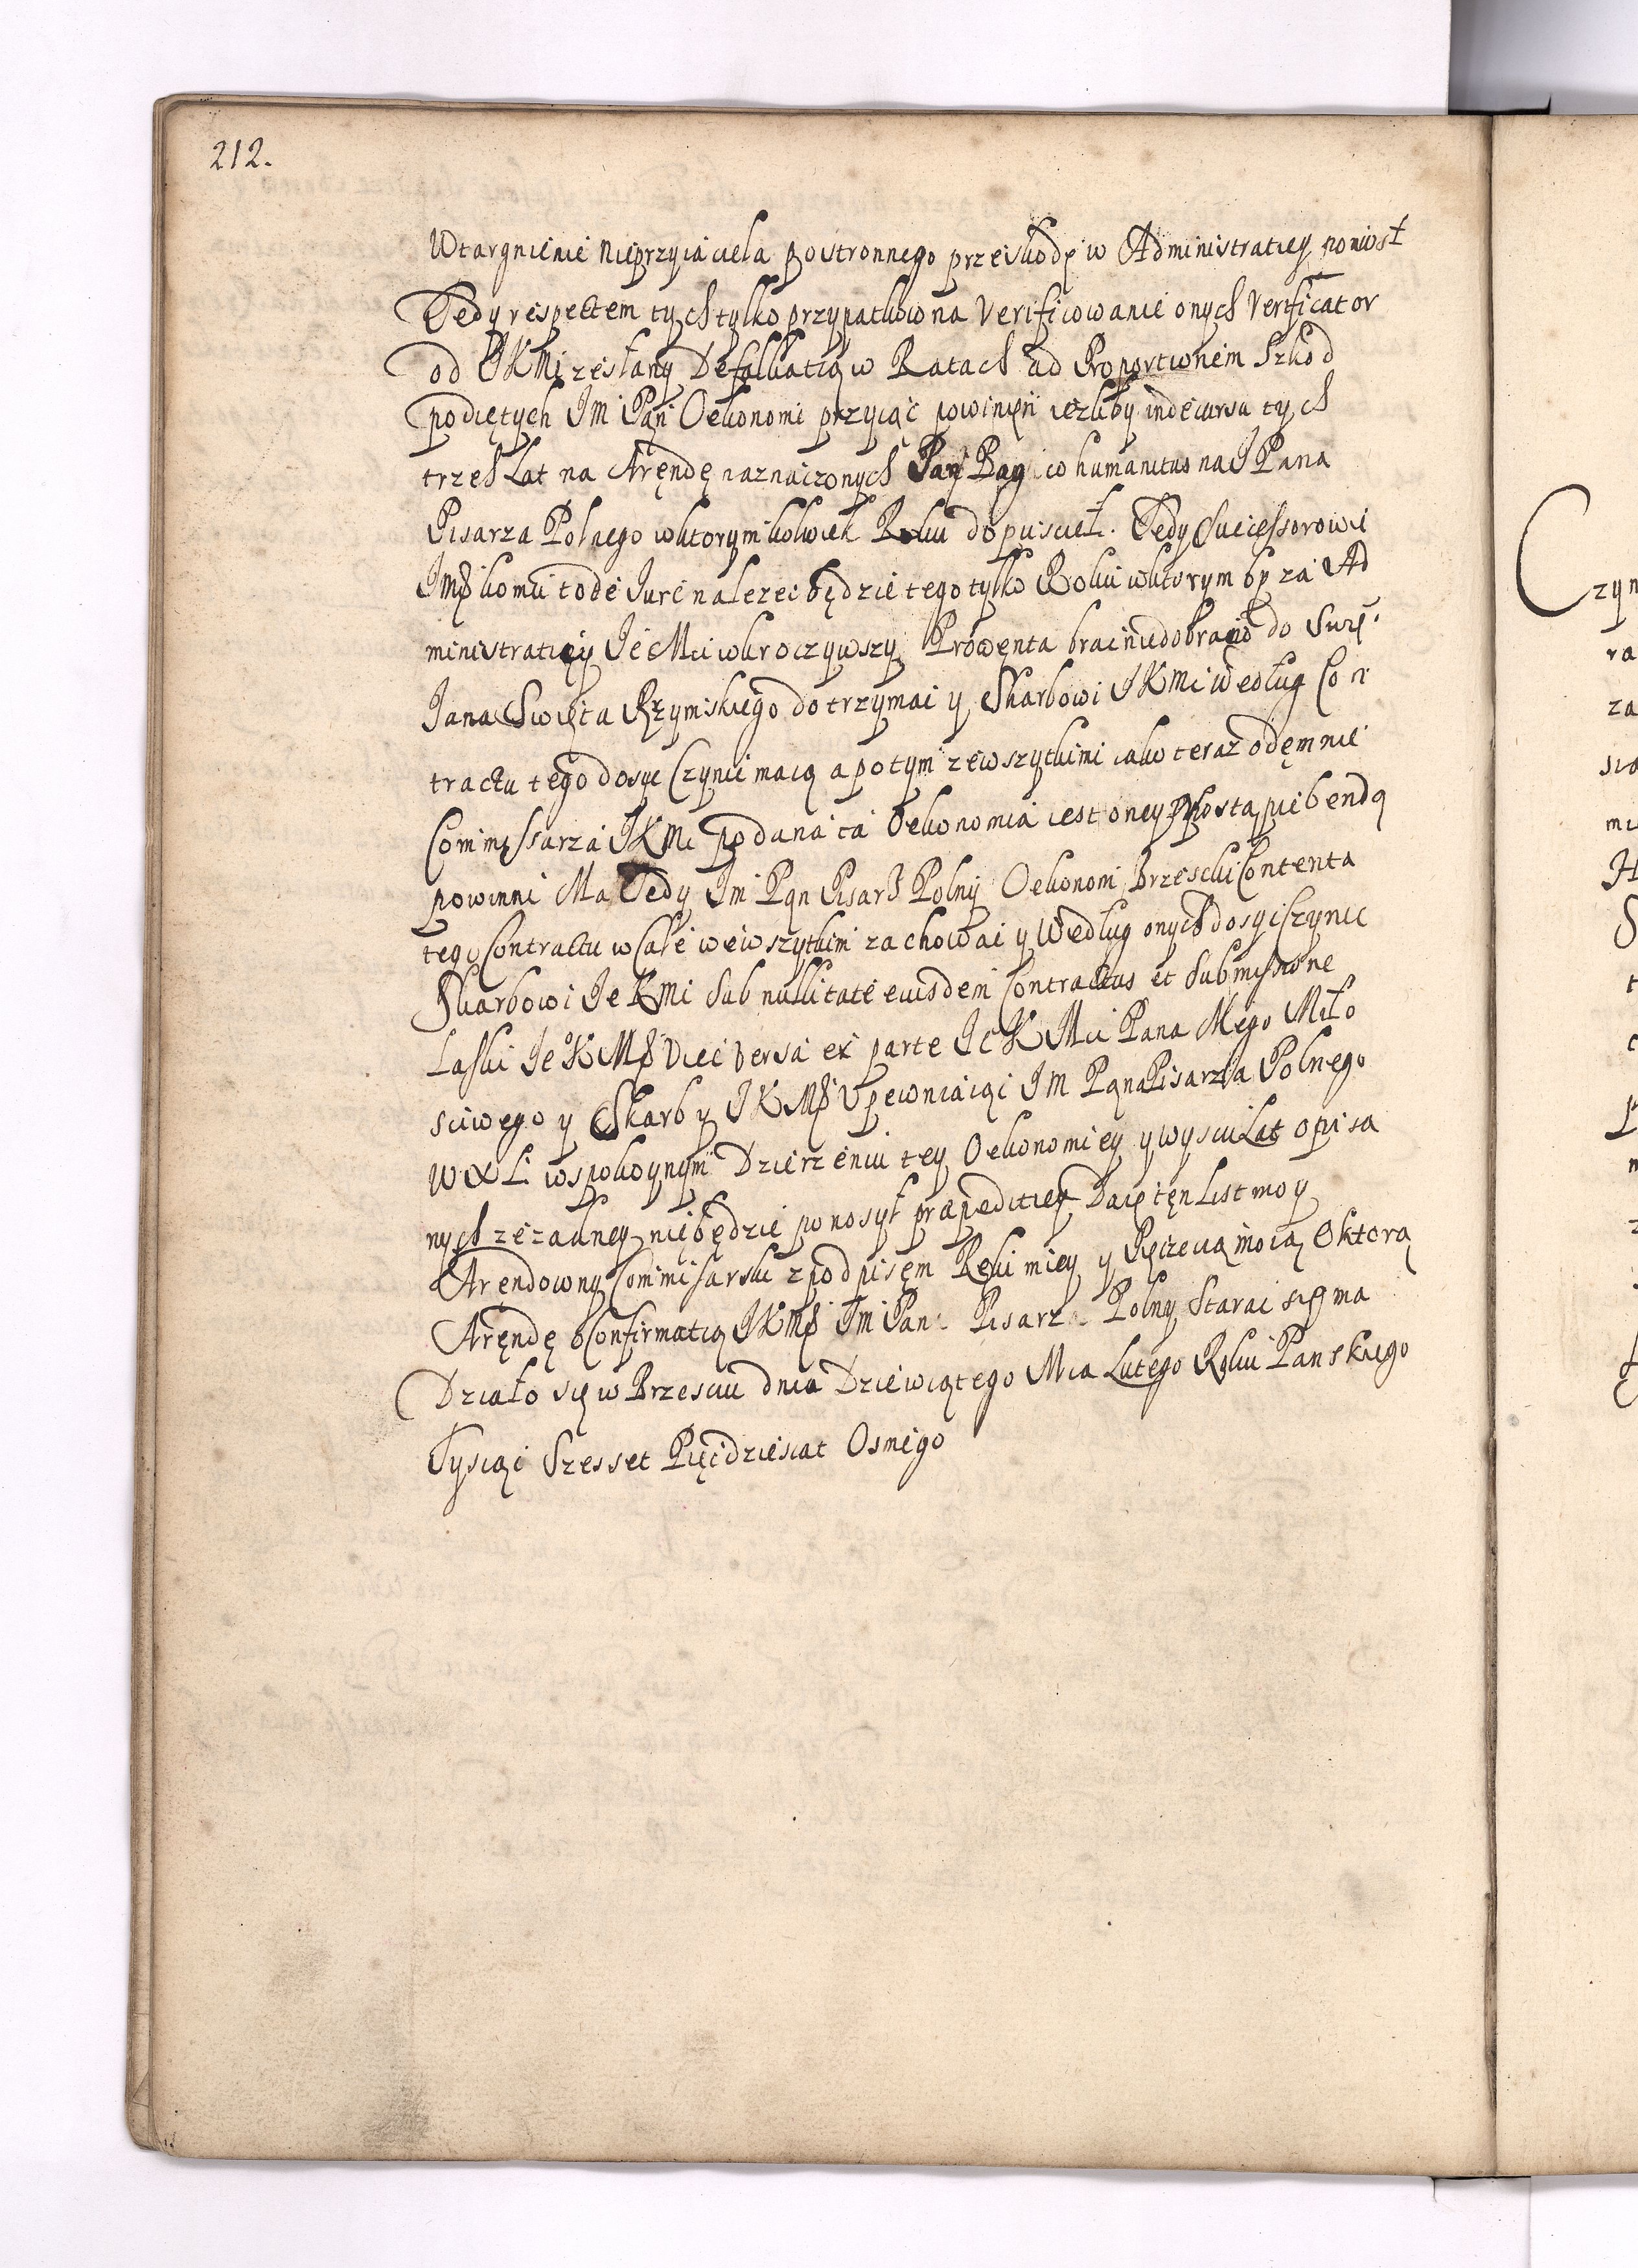 212.
Wtargnienie Nieprzyiaciela postronnego przeskodę w Administratiey poniosł
Tedy respectem tych tylko przypatkow na Verificowanie onych Verificator
od JKMci zesłany Defalkatią w Ratach ad Proportionem Szkod
podiętych Jm Pan Oekonom przyiąć powinien iezliby in decursu tych
trzech Lat na Arendę naznaczonych Pan Bog co humanitus na J Pana
Pisarza Polnego wktorymkolwiek Roku dopuscieł. Tedy Successorowi
Jmści komu to de Jure nalezec będzie tego tylko Roku wktorym by za Ad
ministratiey Je Mci wkroczywszy Prowenta brac niedobrano do Swię.
Jana Swięta Rzymskiego dotrzymac y Skarbowi JKMci według Con
tractu tego dosyc Czynic maią a potym zewszytkimi iako teraz odemnie
Commissarza JKMci podana ta Oekonomia iest oney postąpic bendą
powinni Ma Tedy Jm Pan Pisarz Polny Oekonom Brzescki Contenta
tego Contractu w Cale wewszytkim zachowac y Według onych dosyc Czynic
Skarbowi Je KMci sub nullitate eiusdem Contractus et submissione
Laski Je KMści Vice versa ex parte Je K Mci Pana Mego Miło
sciwego y Skarby JKMści Upewniaiąc Jm Pana Pisarza Polnego
WXLi wspokoynym Dzierzeniu tey Oekonomiey y wysciu Lat opisa
nych ze zadney nie będzie ponosył praepeditiey Daię ten List moy
Arendowny Commisarski z podpisem Ręki miey y Pięczecią moią Oktorą
Arendę o Confirmatią JKMści Jm Pan Pisarz Polny Starac się ma
Działo się w Brzesciu dnia Dziewiątego Mca Lutego Roku Panskiego
Tysiąc Szesset Pięcdziesiat Osmego